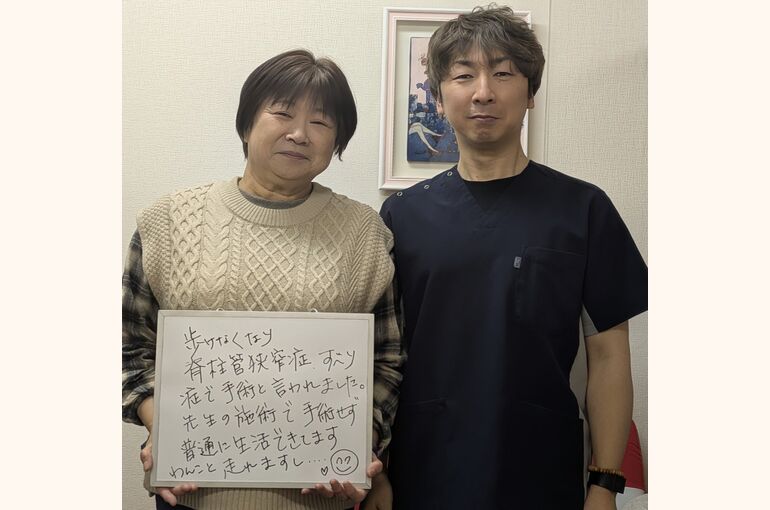 歩けなくなり
脊柱管狭窄症、すべり
症で手術と言われました。
先生の施術で手術せず
普通に生活できてます
わんこと走れますし....